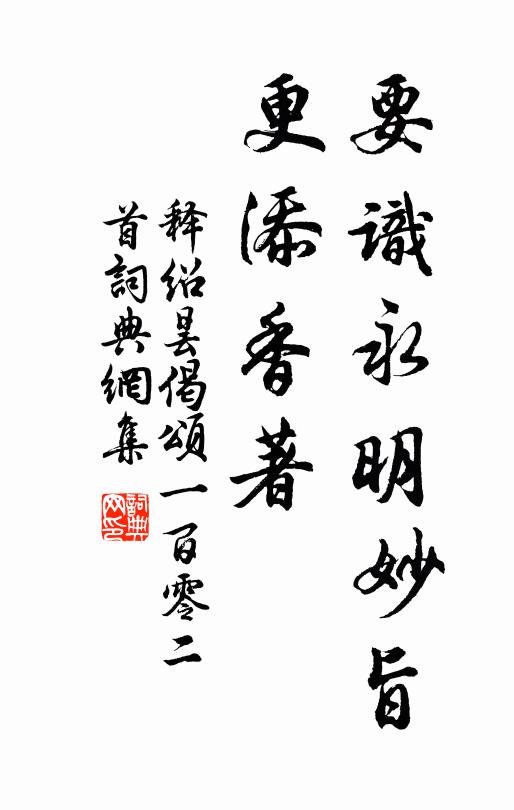 要識永明妙旨
更添香著
释紹昙偈頌一百零二
首詞典網集
詞典网印